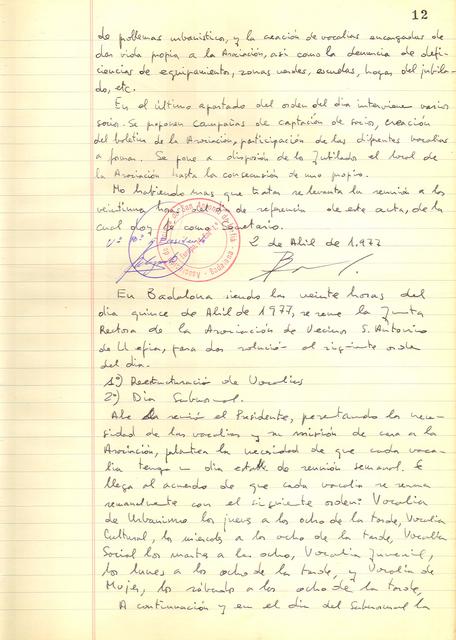 12
de problemas urbanisticos, y la creación de vocalias encargadas de
dar vida propia a la Asociación, asi como la denuncia de defi-
ciencias de equipamientos, zonas verdes, escuelas, hogar del jubila-
do, etc.
En el último apartado del orden del dia intervienen varios
socios. Se proponen campañas de captación de socios, creación
del boletin de la Asociación, participación de las diferentes vocalias
a formar. Se pone a disposición de los Jubilados el local de
la Asociación hasta la consecución de uno propio.
No habiendo mas que tratar se levanta la reunión a las
veintiuna horas del dia de referencia de este acta, de la
cual doy fé como Secretario.
Vº Bº Presidente
2 de Abril de 1.977
En Badalona siendo las veinte horas del
dia quince de Abril de 1977, se reune la Junta
Rectora de la Asociación de Vecinos S. Antonio
de Llefia, para dar solución al siguiente orden
del dia.
1º) Reestructuración de Vocalias
2º) Dia Subnormal.
Abre la reunió el Presidente, presentando la nece-
sidad de las vocalias y su misión de cara a la
Asociación, plantea la necesidad de que cada voca-
lia tenga un dia estable de reunión semanal. Se
llega al acuerdo de que cada vocalia se reuna
semanalmente con el siguiente orden: Vocalia
de Urbanismo los jueves a las ocho de la tarde, Vocalia
Cultural, los miercoles a las ocho de la tarde, Vocalia
Social los martes a las ocho, Vocalia Juvenil,
los lunes a las ocho de la tarde, y Vocalia de
Mujer, los sábados a las ocho de la tarde,
A continuación y en el dia del Subnormal la